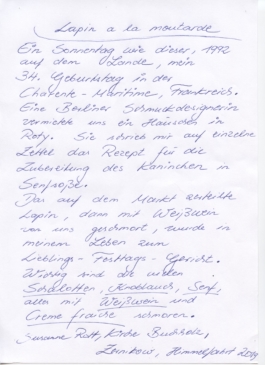 Lapin a la moutarde
Ein Sonnentag wie dieser, 1992
auf dem Lande, mein
34. Geburtstag in der
Charente-Maritime, Frankreich.
Eine Berliner Schmuckdesignerin
vermietete uns ein Häuschen in
Sie schrieb mir auf einzelne
Zettel das Rezept für die
Zubereitung des Kaninchen in
Senfsoße.
Das auf dem Markt
Lapin, dann mit Weißwein
von uns geschmort, wurde in
meinem Leben zum
Lieblings-Festtags-Gericht.
Wichtig sind die
Schalotten, Knoblauch, Senf,
alles mit Weißwein und
Creme fraiche schmoren.
Susanne Kirche Buchholz,
Himmelfahrt